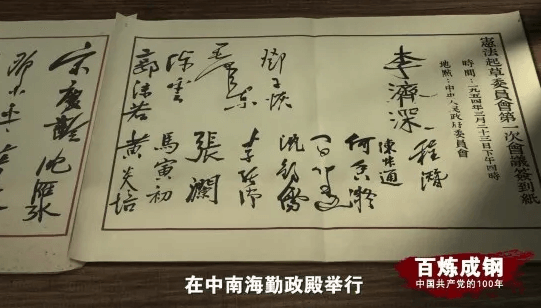 憲法起草委員會第一次會議簽到紙
時間：一九五四年三月二十三日下午四時
地點：中央人民政府委員會
李濟深
程潛
陳叔通
何香凝
鄧子恢
沈鈞儒
毛澤东
張瀾
陳雲
馬寅初
郭沫若
黃炎培
宋慶齡
沈雁冰
在中南海勤政殿举行
百炼成钢
中国共产党的100年